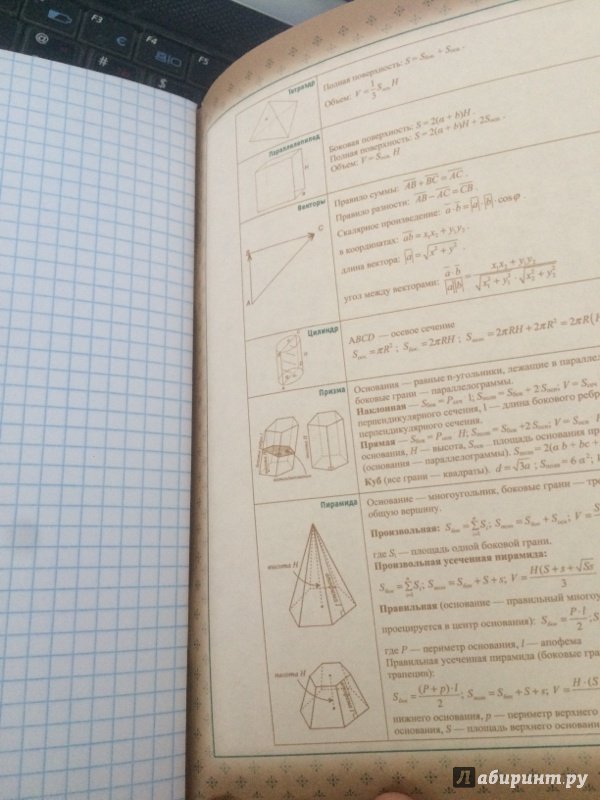 F3
F4
F5
@
#
€
$
Тетраэдр
Полная поверхность: S = Sбок + Sосн .
Объем: V = 1/3 Sосн H
Параллелепипед
Боковая поверхность: S = 2(a + b)H .
Полная поверхность: S = 2(a + b)H + 2Sосн .
Объем: V = Sосн H
H
Векторы
B
C
A
Правило суммы: AB + BC = AC .
Правило разности: AB − AC = CB .
Скалярное произведение: a · b = |a| · |b| · cos φ
в координатах: ab = x₁x₂ + y₁y₂ .
длина вектора: |a| = √(x² + y²) .
угол между векторами: (a · b)/(|a||b|) = (x₁x₂ + y₁y₂)/(√(x₁² + y₁²) · √(x₂² + y₂²))
Цилиндр
ABCD — осевое сечение
Sосн = πR² ; Sбок = 2πRH ; Sполн = 2πRH + 2πR² = 2πR(H
Призма
Основания — равные n-угольники, лежащие в паралле
боковые грани — параллелограммы.
Наклонная — Sбок = Pсеч l; Sполн = Sбок + 2 Sосн; V = Sсеч
перпендикулярного сечения, l — длина бокового ребр
перпендикулярного сечения.
Прямая — Sбок = Pосн H; Sполн = Sбок + 2Sосн; V = Sосн
основания, H — высота, Sосн — площадь основания пр
(основания — параллелограммы). Sполн = 2(a b + bc +
Куб (все грани — квадраты). d = √3a ; Sполн = 6 a² ;
Пирамида
Основание — многоугольник, боковые грани — тре
общую вершину.
Произвольная: Sбок = Σ Sᵢ; Sполн = Sбок + Sосн; V = S
где Sᵢ — площадь одной боковой грани.
Произвольная усеченная пирамида:
Sбок = Σ Sᵢ; Sполн = Sбок + S + s; V = H(S + s + √Ss)/3
Правильная (основание — правильный многоу
проецируется в центр основания): Sбок = P·l/2 ; S
где P — периметр основания, l — апофема
Правильная усеченная пирамида (боковые гра
трапеции):
Sбок = (P + p)·l/2 ; Sполн = Sбок + S + s; V = H · (S
нижнего основания, p — периметр верхнего
основания, S — площадь верхнего основани
высота H
апофема l
высота H
апофема l
Лабиринт.ру